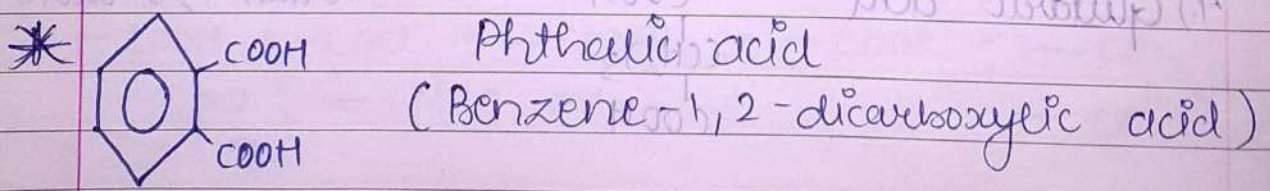 * COOH Phthalic acid
(Benzene-1,2-dicarboxylic acid)
COOH